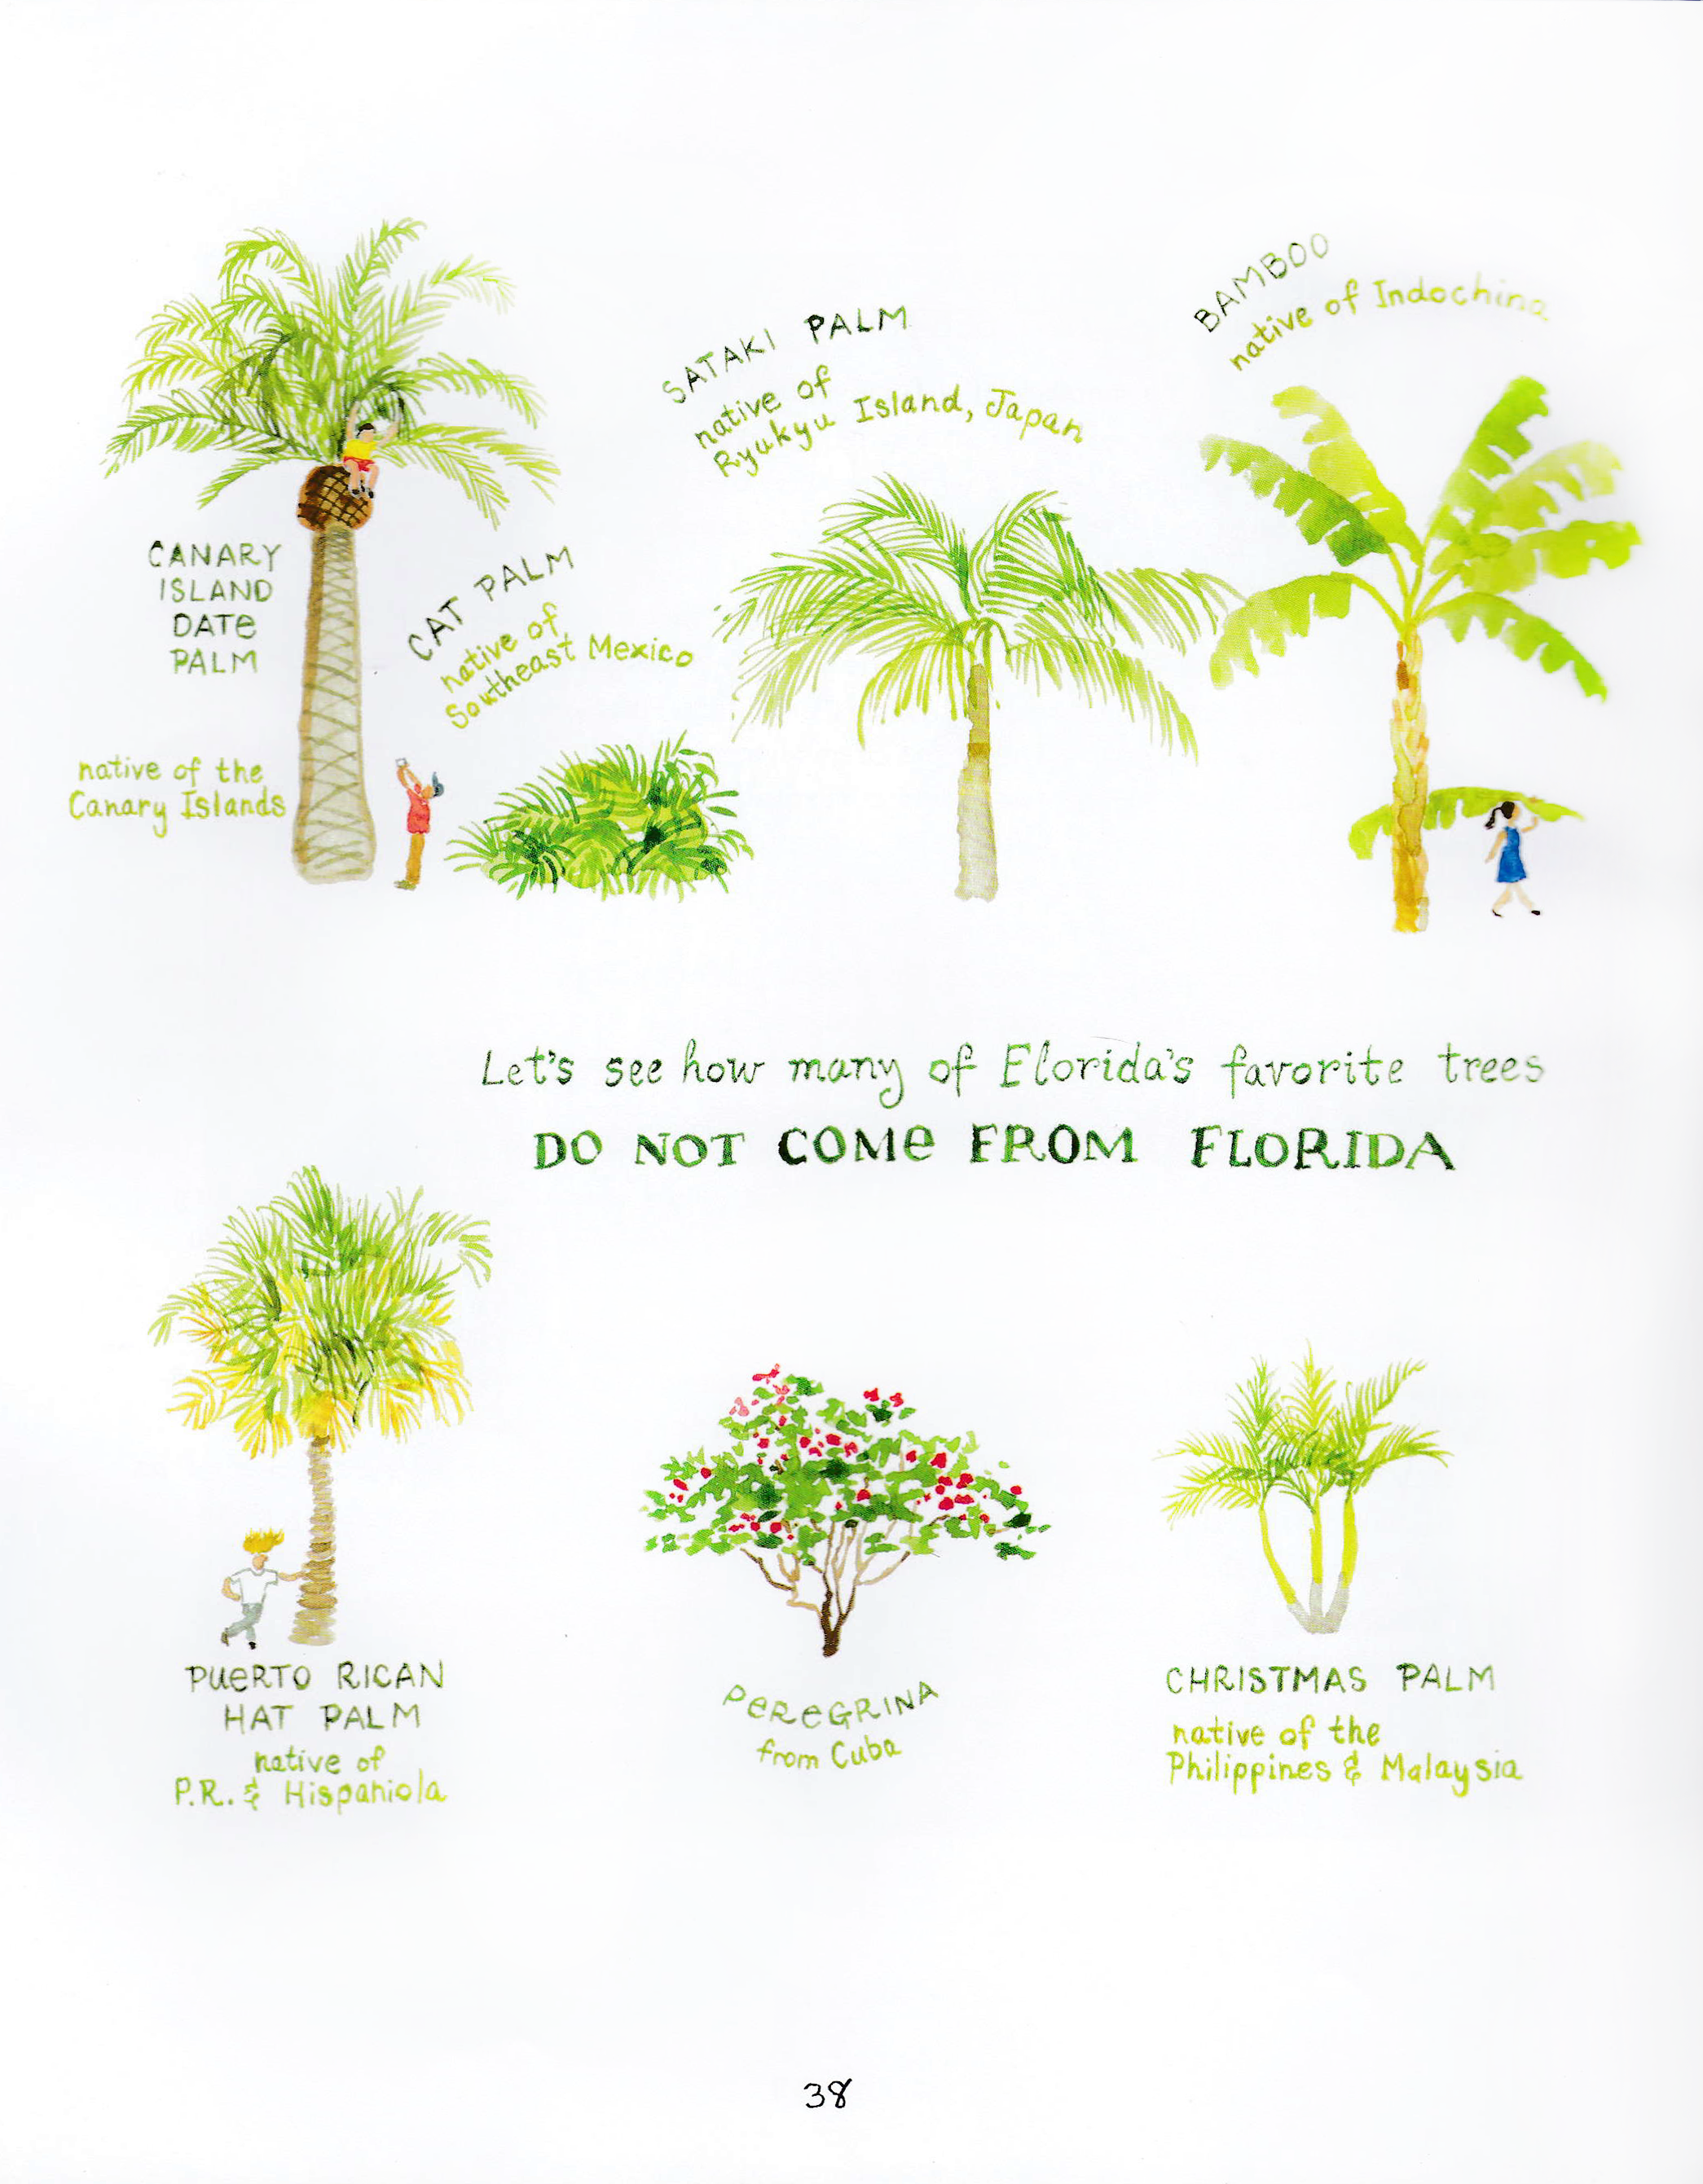 BAMBOO
native of Indochina
SATAKI PALM
native of
Ryukyu Island, Japan
CANARY
ISLAND
DATE
PALM
native of the
Canary Islands
CAT PALM
native of
Southeast Mexico
Let's see how many of Florida's favorite trees
DO NOT COME FROM FLORIDA
PUERTO RICAN
HAT PALM
native of
P.R. & Hispaniola
PEREGRINA
from Cuba
CHRISTMAS PALM
native of the
Philippines & Malaysia
38